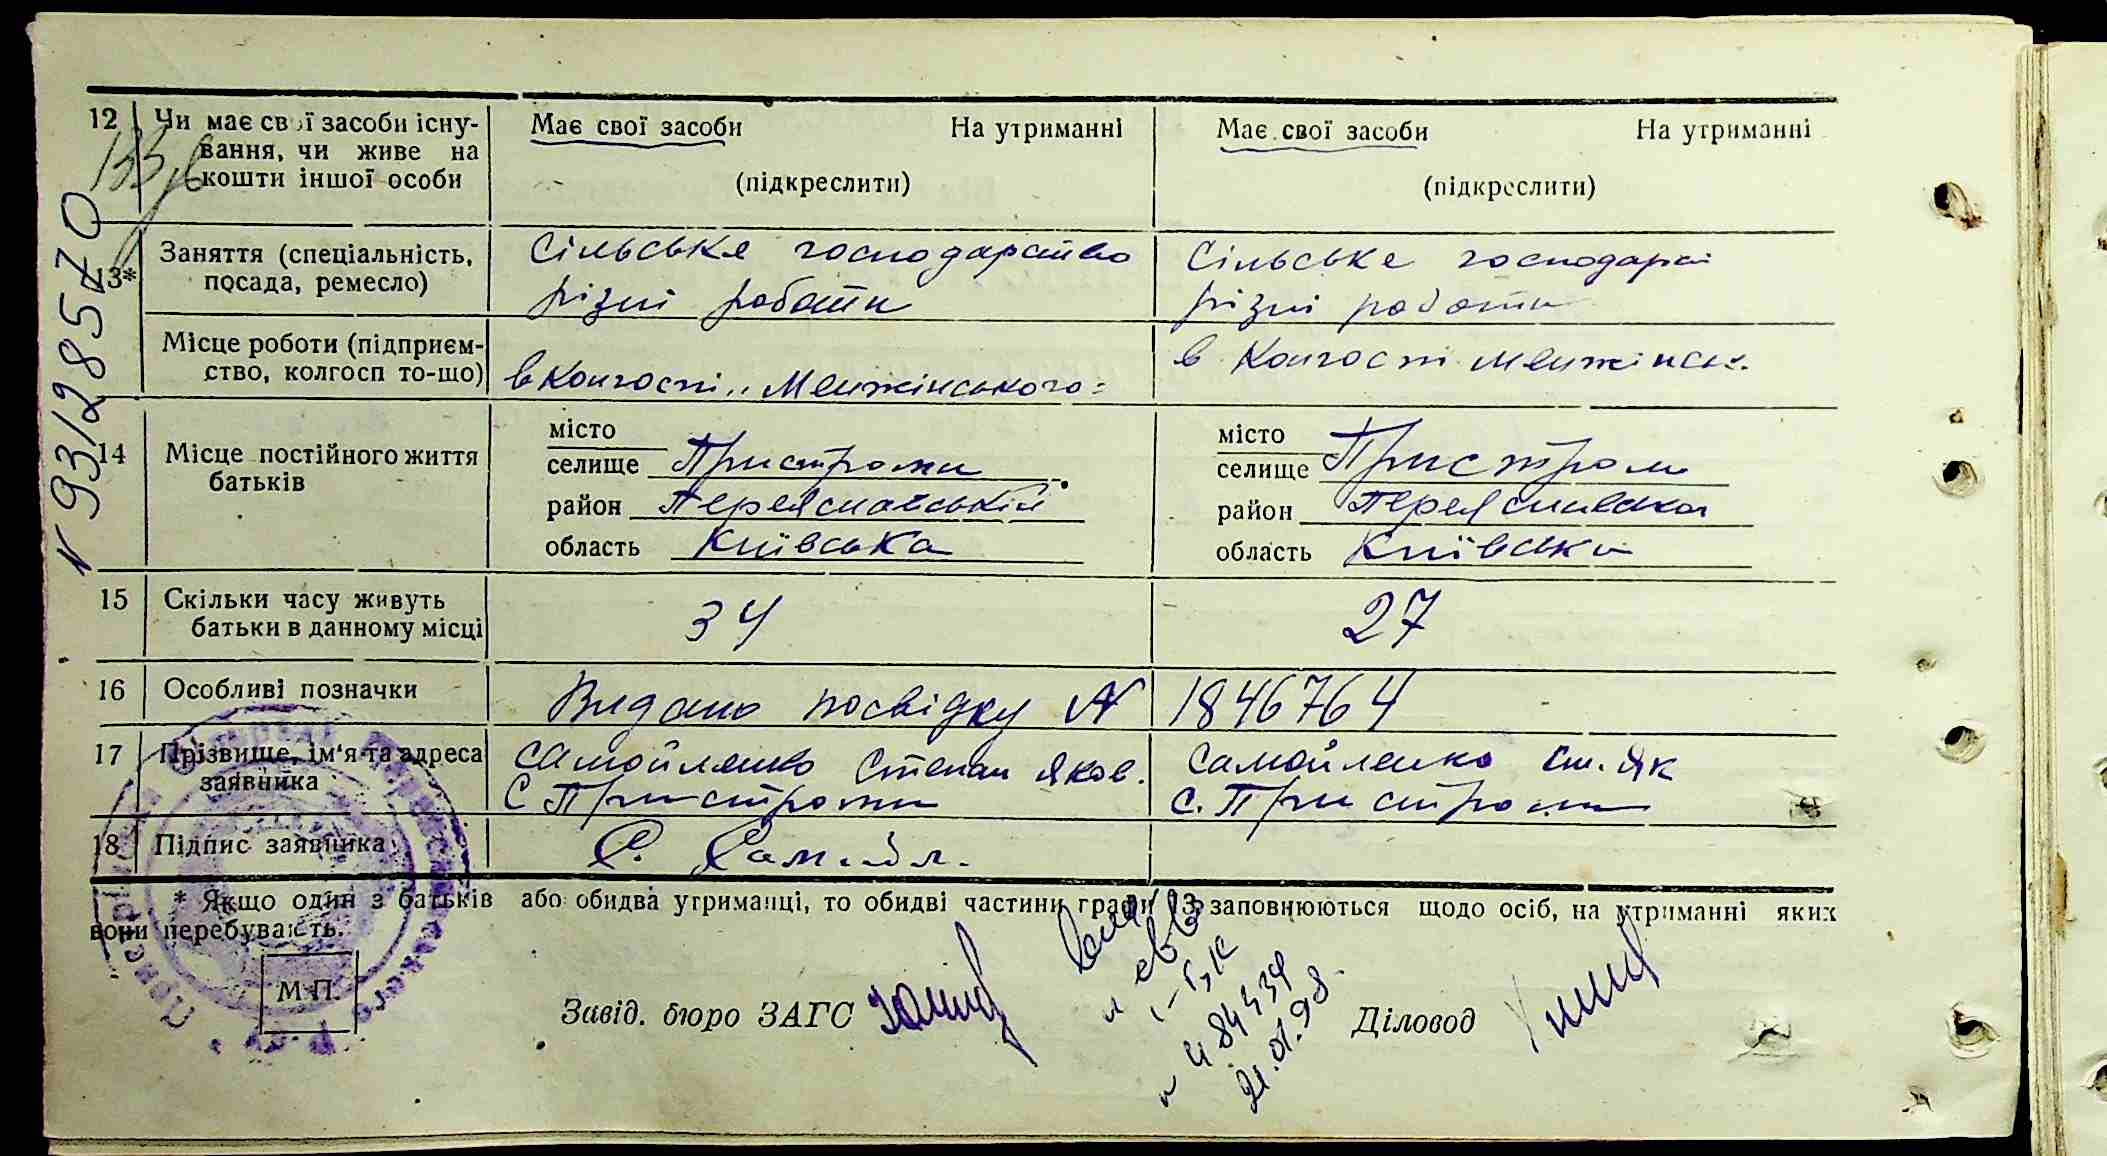 12 Чи має свої засоби існу- Має свої засоби На утриманні Має свої засоби На утриманні
вання, чи живе на
кошти іншої особи (підкреслити) (підкреслити)
13* Заняття (спеціальність, Сільське господарство Сільське господарс
посада, ремесло) різні роботи різні роботи
Місце роботи (підприєм- в Колгоспі Менжинськ.
ство, колгосп то-що) в Колгоспі „Менжінського"
14 Місце постійного життя батьків
місто місто
селище Пристроми селище Пристроми
район Переяславський район
область Київська область Київська
15 Скільки часу живуть 34 27
батьки в данному місці
16 Особливі позначки Видано посвідку № 1846764
17 Прізвище, ім'я та адреса Самойленко Степан Яков. Самойленко Ст. Як
заявника с Пристроми с. Пристроми
18 Підпис заявника С.
* Якщо один з батьків або обидва утриманці, то обидві частини графи 13 заповнюються щодо осіб, на утриманні яких
вони перебувають.
М П.
Завід. бюро ЗАГС Діловод
21.01.98